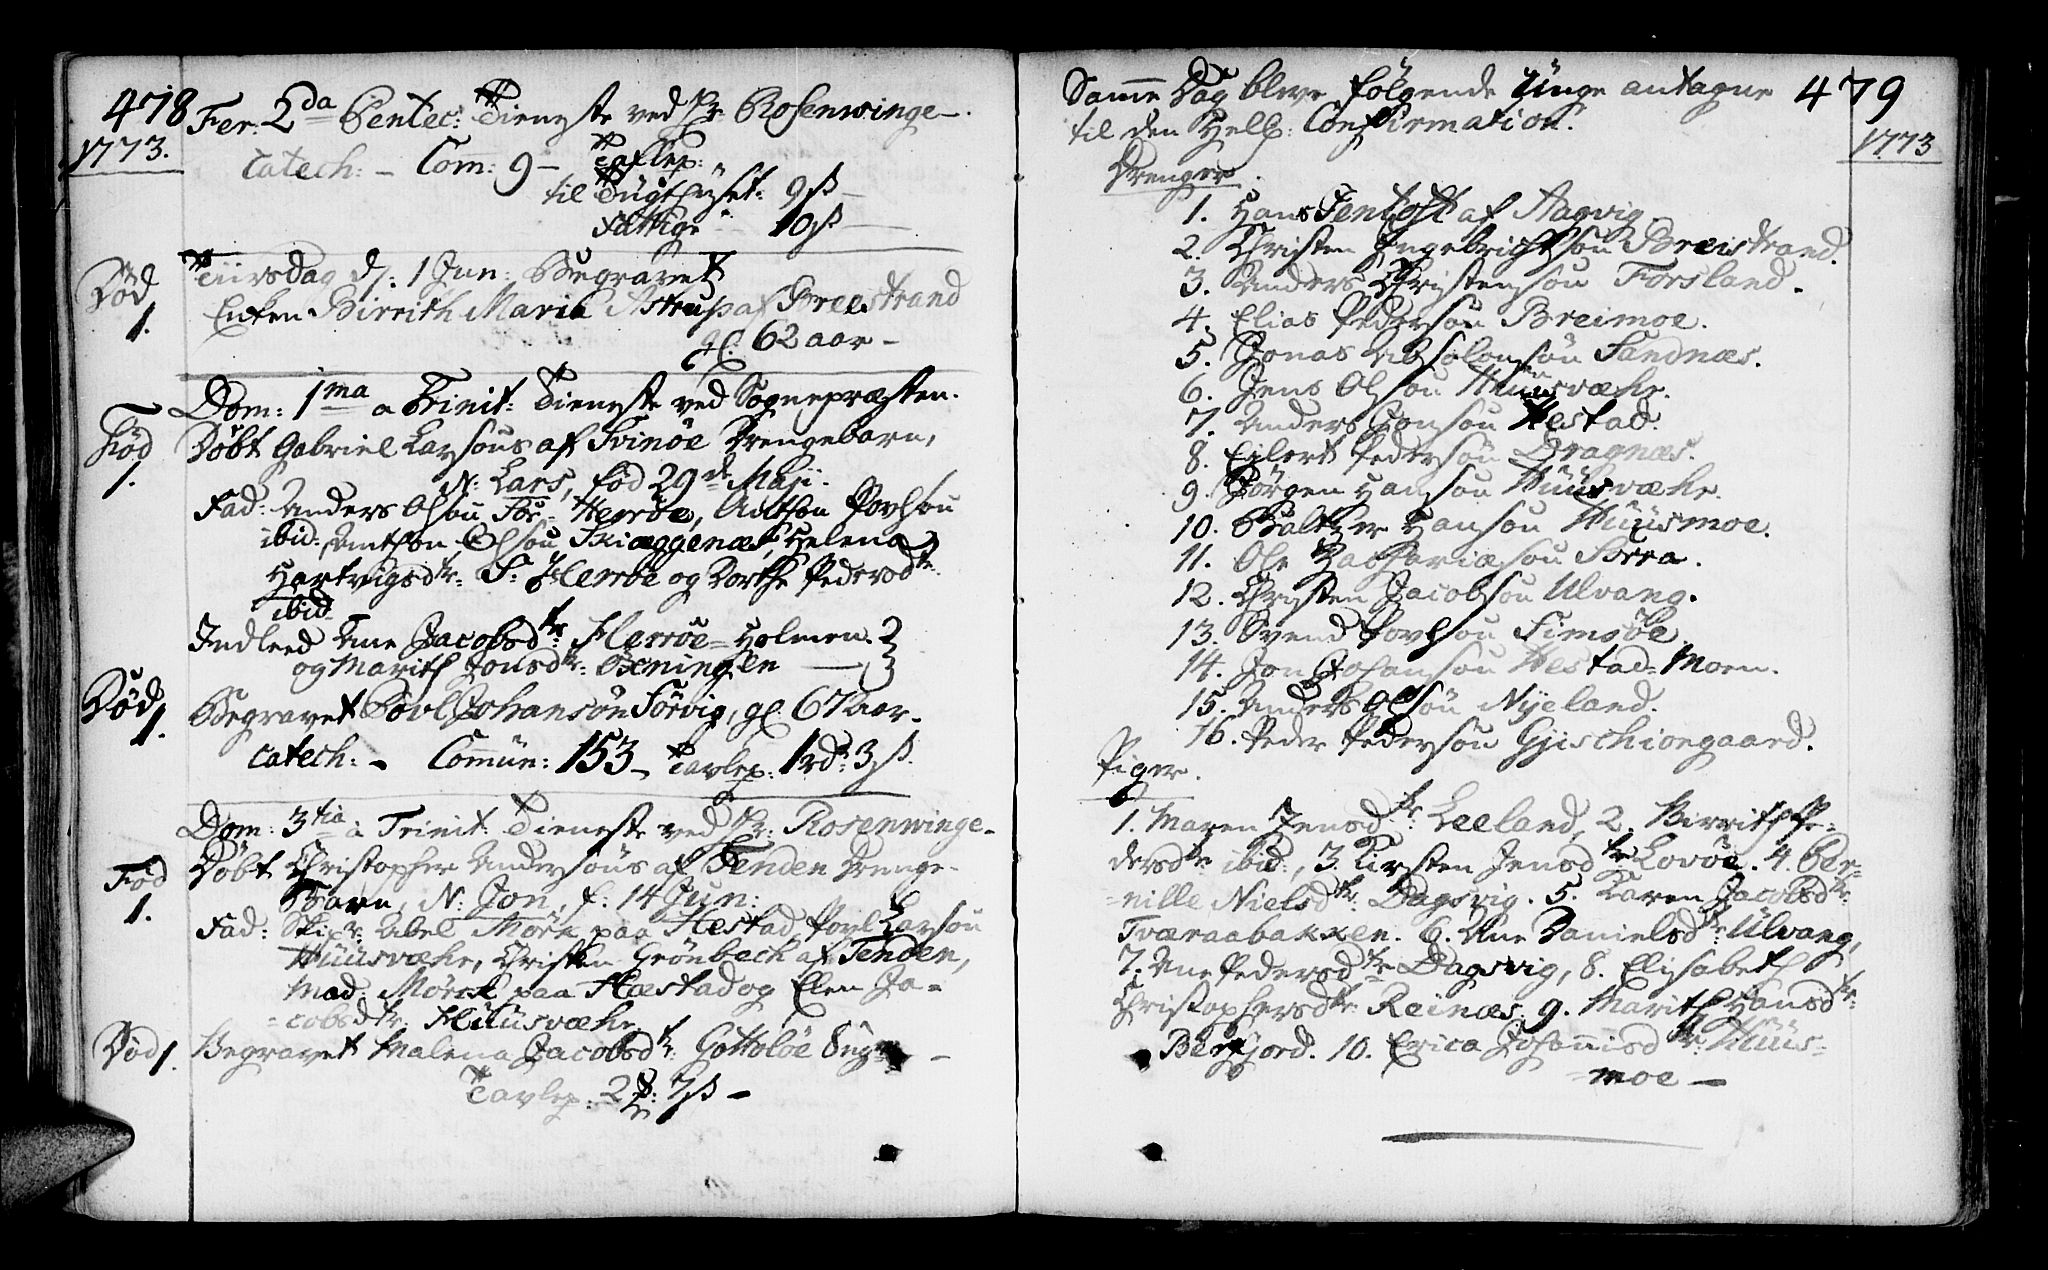 478
1773.
Fer: 2da Pentec: Tieneste ved Hr. Rosenwinge.
Catech: - Com: 9 - Taflep:
til Tugthüset: 9ß -
Fattige 10ß
Død
1.
Tiirsdag d: 1 Jun: Begravet
Enken Birrith Maria Astrup af Breestrand
gl: 62 aar -
Dom: 1ma a Trinit: Tieneste ved Sognepræsten.
Fød
1.
Døbt Gabriel Larsöns af Svinöe Drengebarn,
N: Lars, föd 29de Maji.
Fad: Anders Olsön Herröe, Povlsön
ibid: Olsön Skiæggenæs, Helena
Hartvigsdtr: S: Herröe og Dorthe Pedersdtr:
ibid:
Indleed Ane Jacobsdtr: Herröe-Holmen.
og Marith Jonsdtr: Öxningen
Död
1.
Begravet Povl Johansön Sörvig, gl 67 aar.
Catech: - Commün: 153 - Tavlep: 1 rd: 3ß.
Dom: 3tia a Trinit: Tieneste ved Hr: Rosenwinge.
Fød
1.
Döbt Christopher Andersöns af Tenden Drenge-
Barn, N: Jon, f: 14 Jun:
Fad: Skip: Abel Mörk paa Hestad, Povl Larsön
Hüüsvæhr, Christen Grönbech af Tenden,
Mad: Mörck paa Hæstad og Elen Ja-
-cobsdtr: Hüüsvæhr.
Död 1.
Begravet Malena Jacobsdtr: Gottolöe
Tavlep: 2 7ß -
Samme Dag bleve følgende Ünge antagne
479
til den Hell: Confirmation.
1773
Drenger.
1. Hans Jentoft af Aagvig.
2. Christen Ingebrichtsön Breistrand.
3. Anders Christensön Forsland.
4. Elias Pedersön Breimoe.
5. Jonas Absolonsön Sandnæs.
6. Jens Olsön Hüüsvæhr.
7. Anders Jonsön Hestad.
8. Eilert Pedersön Dragnæs.
9. Jörgen Hansön Hüüsvæhr.
10. Baltzer Hansön Hüüsmoe.
11. Ole Zachariæsön Sörra.
12. Christen Jacobsön Ulvang.
13. Svend Povlsön Simsöe
14. Jon Johansön Hestad-Moen.
15. Anders Olsön Nyeland.
16. Peder Pedersön Gjischiongaard.
Piger.
1. Maren Jensdtr: Leeland, 2. Birrith Pe-
dersdtr: ibid:, 3. Kirsten Jensdtr: Lovöe. 4. Per-
-nille Nielsdtr: Dagsvig. 5. Karen Jacobsdtr:
Tværaabakken. 6. Ane Danielsdtr: Ülvang,
7. Ane Pedersdtr: Dagsvig, 8. Elisabeth
Christophersdtr: Reinæs. 9. Marith Hansdtr:
Bergfjord. 10. Erica Johannisdtr: Hüüs-
-moe -